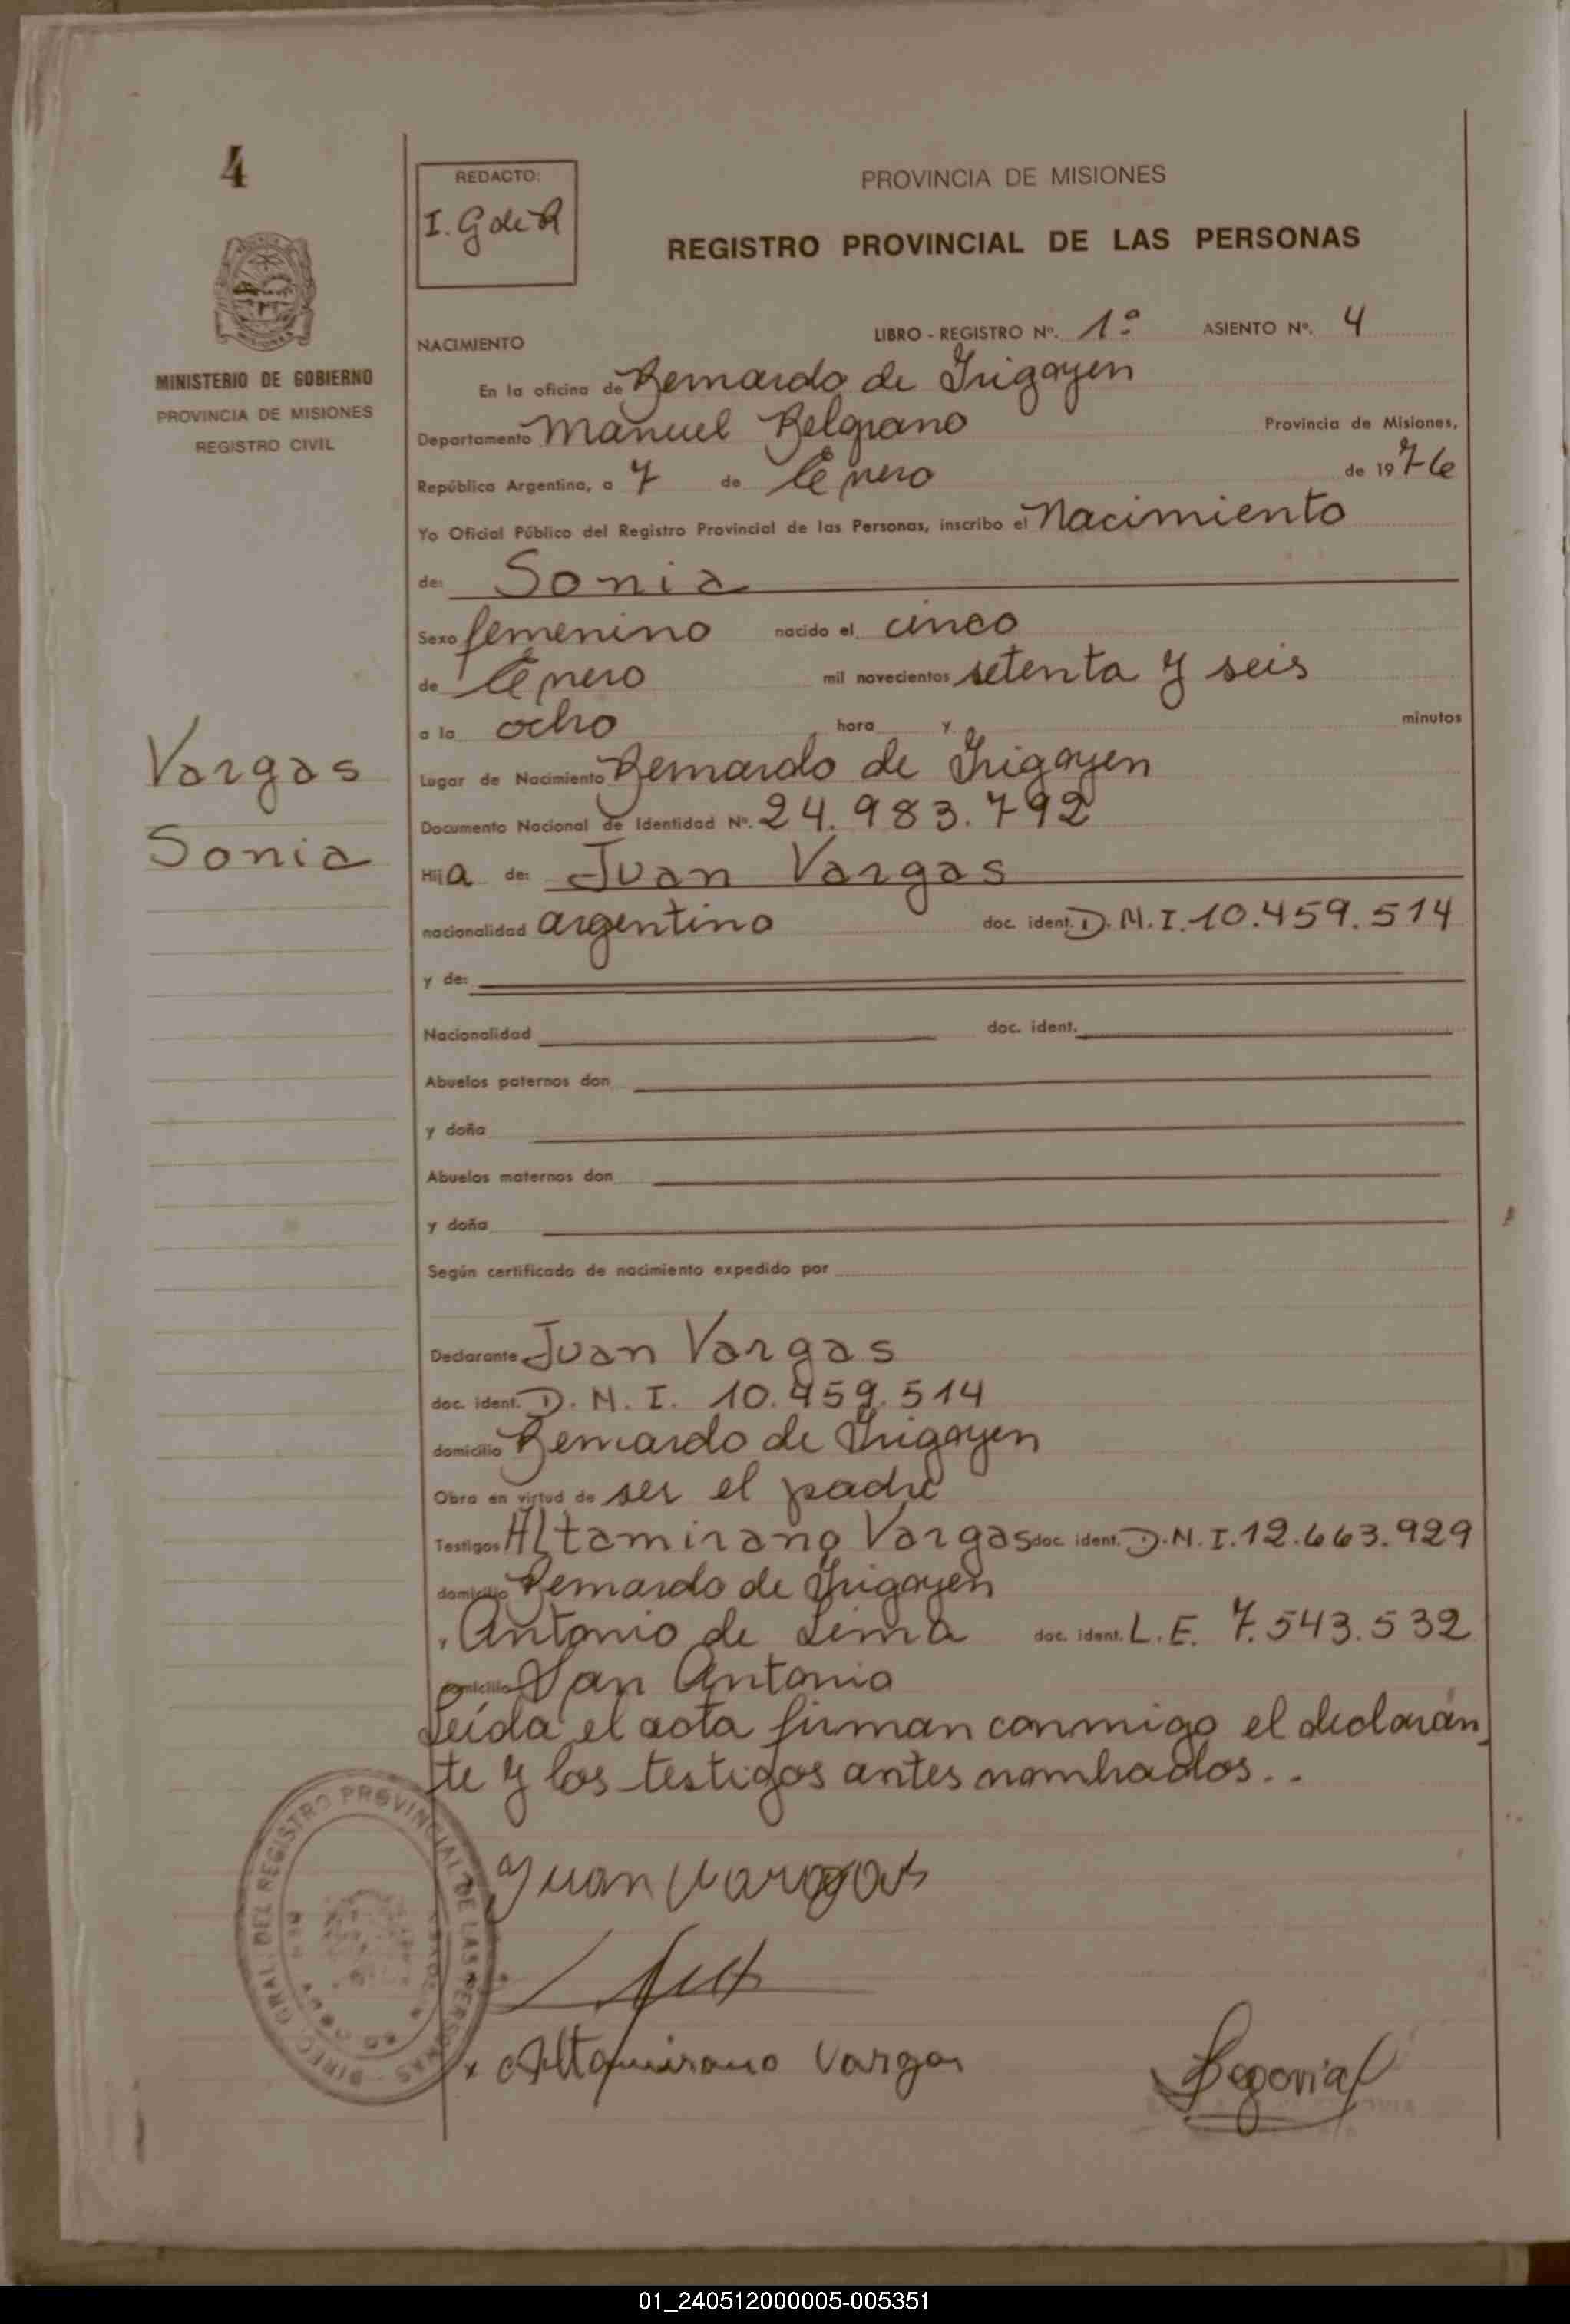 4
MINISTERIO DE GOBIERNO
PROVINCIA DE MISIONES
REGISTRO CIVIL
Vargas
Sonia
REDACTO:
I. G de R
PROVINCIA DE MISIONES
REGISTRO PROVINCIAL DE LAS PERSONAS
NACIMIENTO LIBRO - REGISTRO Nº. 1º ASIENTO Nº. 4
En la oficina de Bernardo de Irigoyen
Departamento Manuel Belgrano Provincia de Misiones,
República Argentina, a 7 de Enero de 1976
Yo Oficial Público del Registro Provincial de las Personas, inscribo el Nacimiento
de: Sonia
Sexo femenino nacido el cinco
de Enero mil novecientos setenta y seis
a la ocho hora y minutos
Lugar de Nacimiento Bernardo de Irigoyen
Documento Nacional de Identidad Nº. 24.983.792
Hija de: Juan Vargas
nacionalidad argentino doc. ident. D.N.I. 10.459.514
y de:
Nacionalidad doc. ident.
Abuelos paternos don
y doña
Abuelos maternos don
y doña
Según certificado de nacimiento expedido por
Declarante Juan Vargas
doc. ident. D.N.I. 10.459.514
domicilio Bernardo de Irigoyen
Obra en virtud de ser el padre
Testigos Altamirano Vargas doc. ident. D.N.I. 12.663.929
domicilio Bernardo de Irigoyen
, Antonio de Lima doc. ident. L.E. 7.543.532
domicilio San Antonio
Leída el acta firman conmigo el declaran
te y los testigos antes nombrados..
DIREC. GRAL. DEL REGISTRO PROVINCIAL DE LAS PERSONAS
Juan Vargas
x Altamirano Vargas
Segovia
01_240512000005-005351